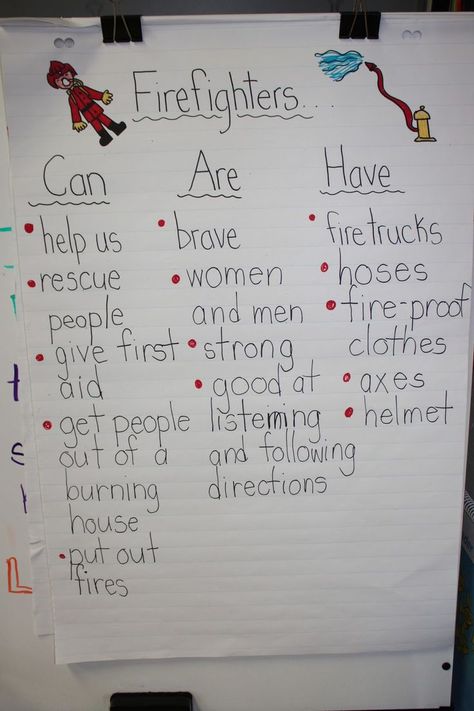 Firefighters...
Can
help us
rescue
people
give first
aid
get people
out of a
burning
house
put out
fires
Are
brave
women
and men
strong
good at
listening
and following
directions
Have
fire trucks
hoses
fire-proof
clothes
axes
helmet